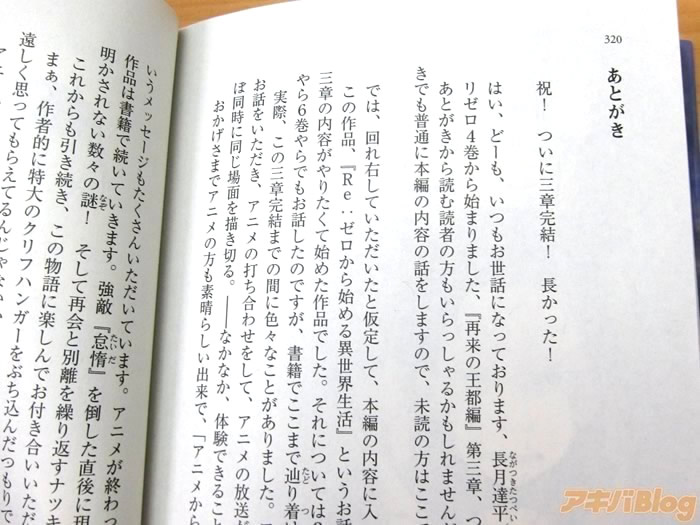 320
あとがき
祝！　ついに三章完結！　長かった！
はい、どーも、いつもお世話になっております、長月達平
ながつきたつぺい
リゼロ４巻から始まりました、『再来の王都編』第三章、つ
あとがきから読む読者の方もいらっしゃるかもしれませんが
きでも普通に本編の内容の話をしますので、未読の方はここで
では、回れ右していただいたと仮定して、本編の内容に入
この作品、『Ｒｅ：ゼロから始める異世界生活』というお話
三章の内容がやりたくて始めた作品でした。それについては
やら６巻やらでもお話したのですが、書籍でここまで辿り着
たど
つ
実際、この三章完結までの間に色々なことがありました。
お話をいただき、アニメの打ち合わせをして、アニメの放送が
ぼ同時に同じ場面を描き切る。――なかなか、体験できること
おかげさまでアニメの方も素晴らしい出来で、「アニメから
いうメッセージもたくさんいただいています。アニメが終わっ
作品は書籍で続いていきます。強敵『怠惰』を倒した直後に現
たいだ
明かされない数々の謎！　そして再会と別離を繰り返すナツキ
なぞ
これからも引き続き、この物語に楽しんでお付き合いいただ
まぁ、作者的に特大のクリフハンガーをぶち込んだつもりで
遠しく思ってもらえてるんじゃないか
アキバBlog